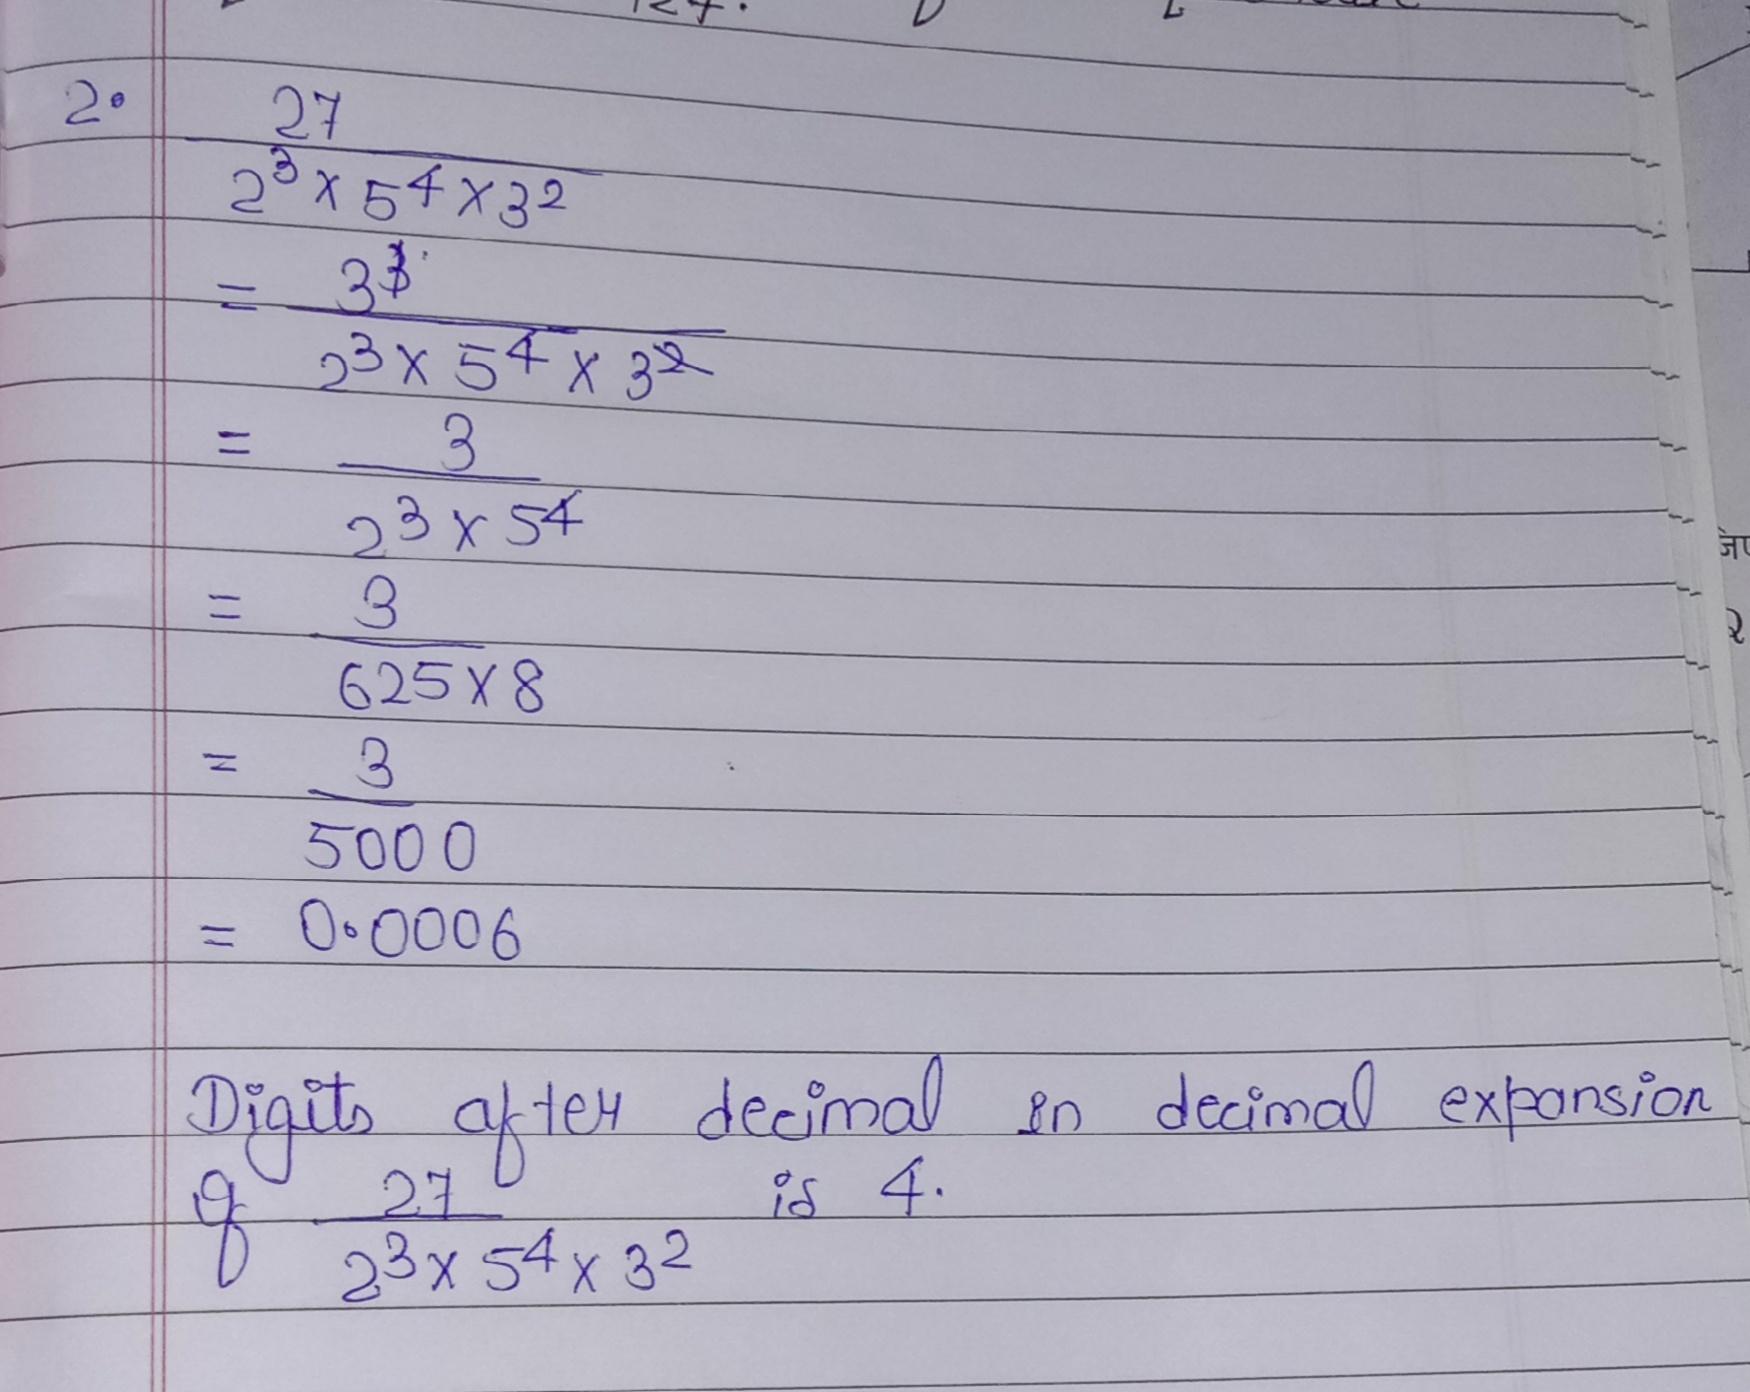 124.
2.
27
2³ × 5⁴ × 3²
= 3³
2³ × 5⁴ × 3²
= 3
2³ × 5⁴
= 3
625 × 8
= 3
5000
= 0.0006
Digits after decimal in decimal expansion
of 27 is 4.
2³ × 5⁴ × 3²